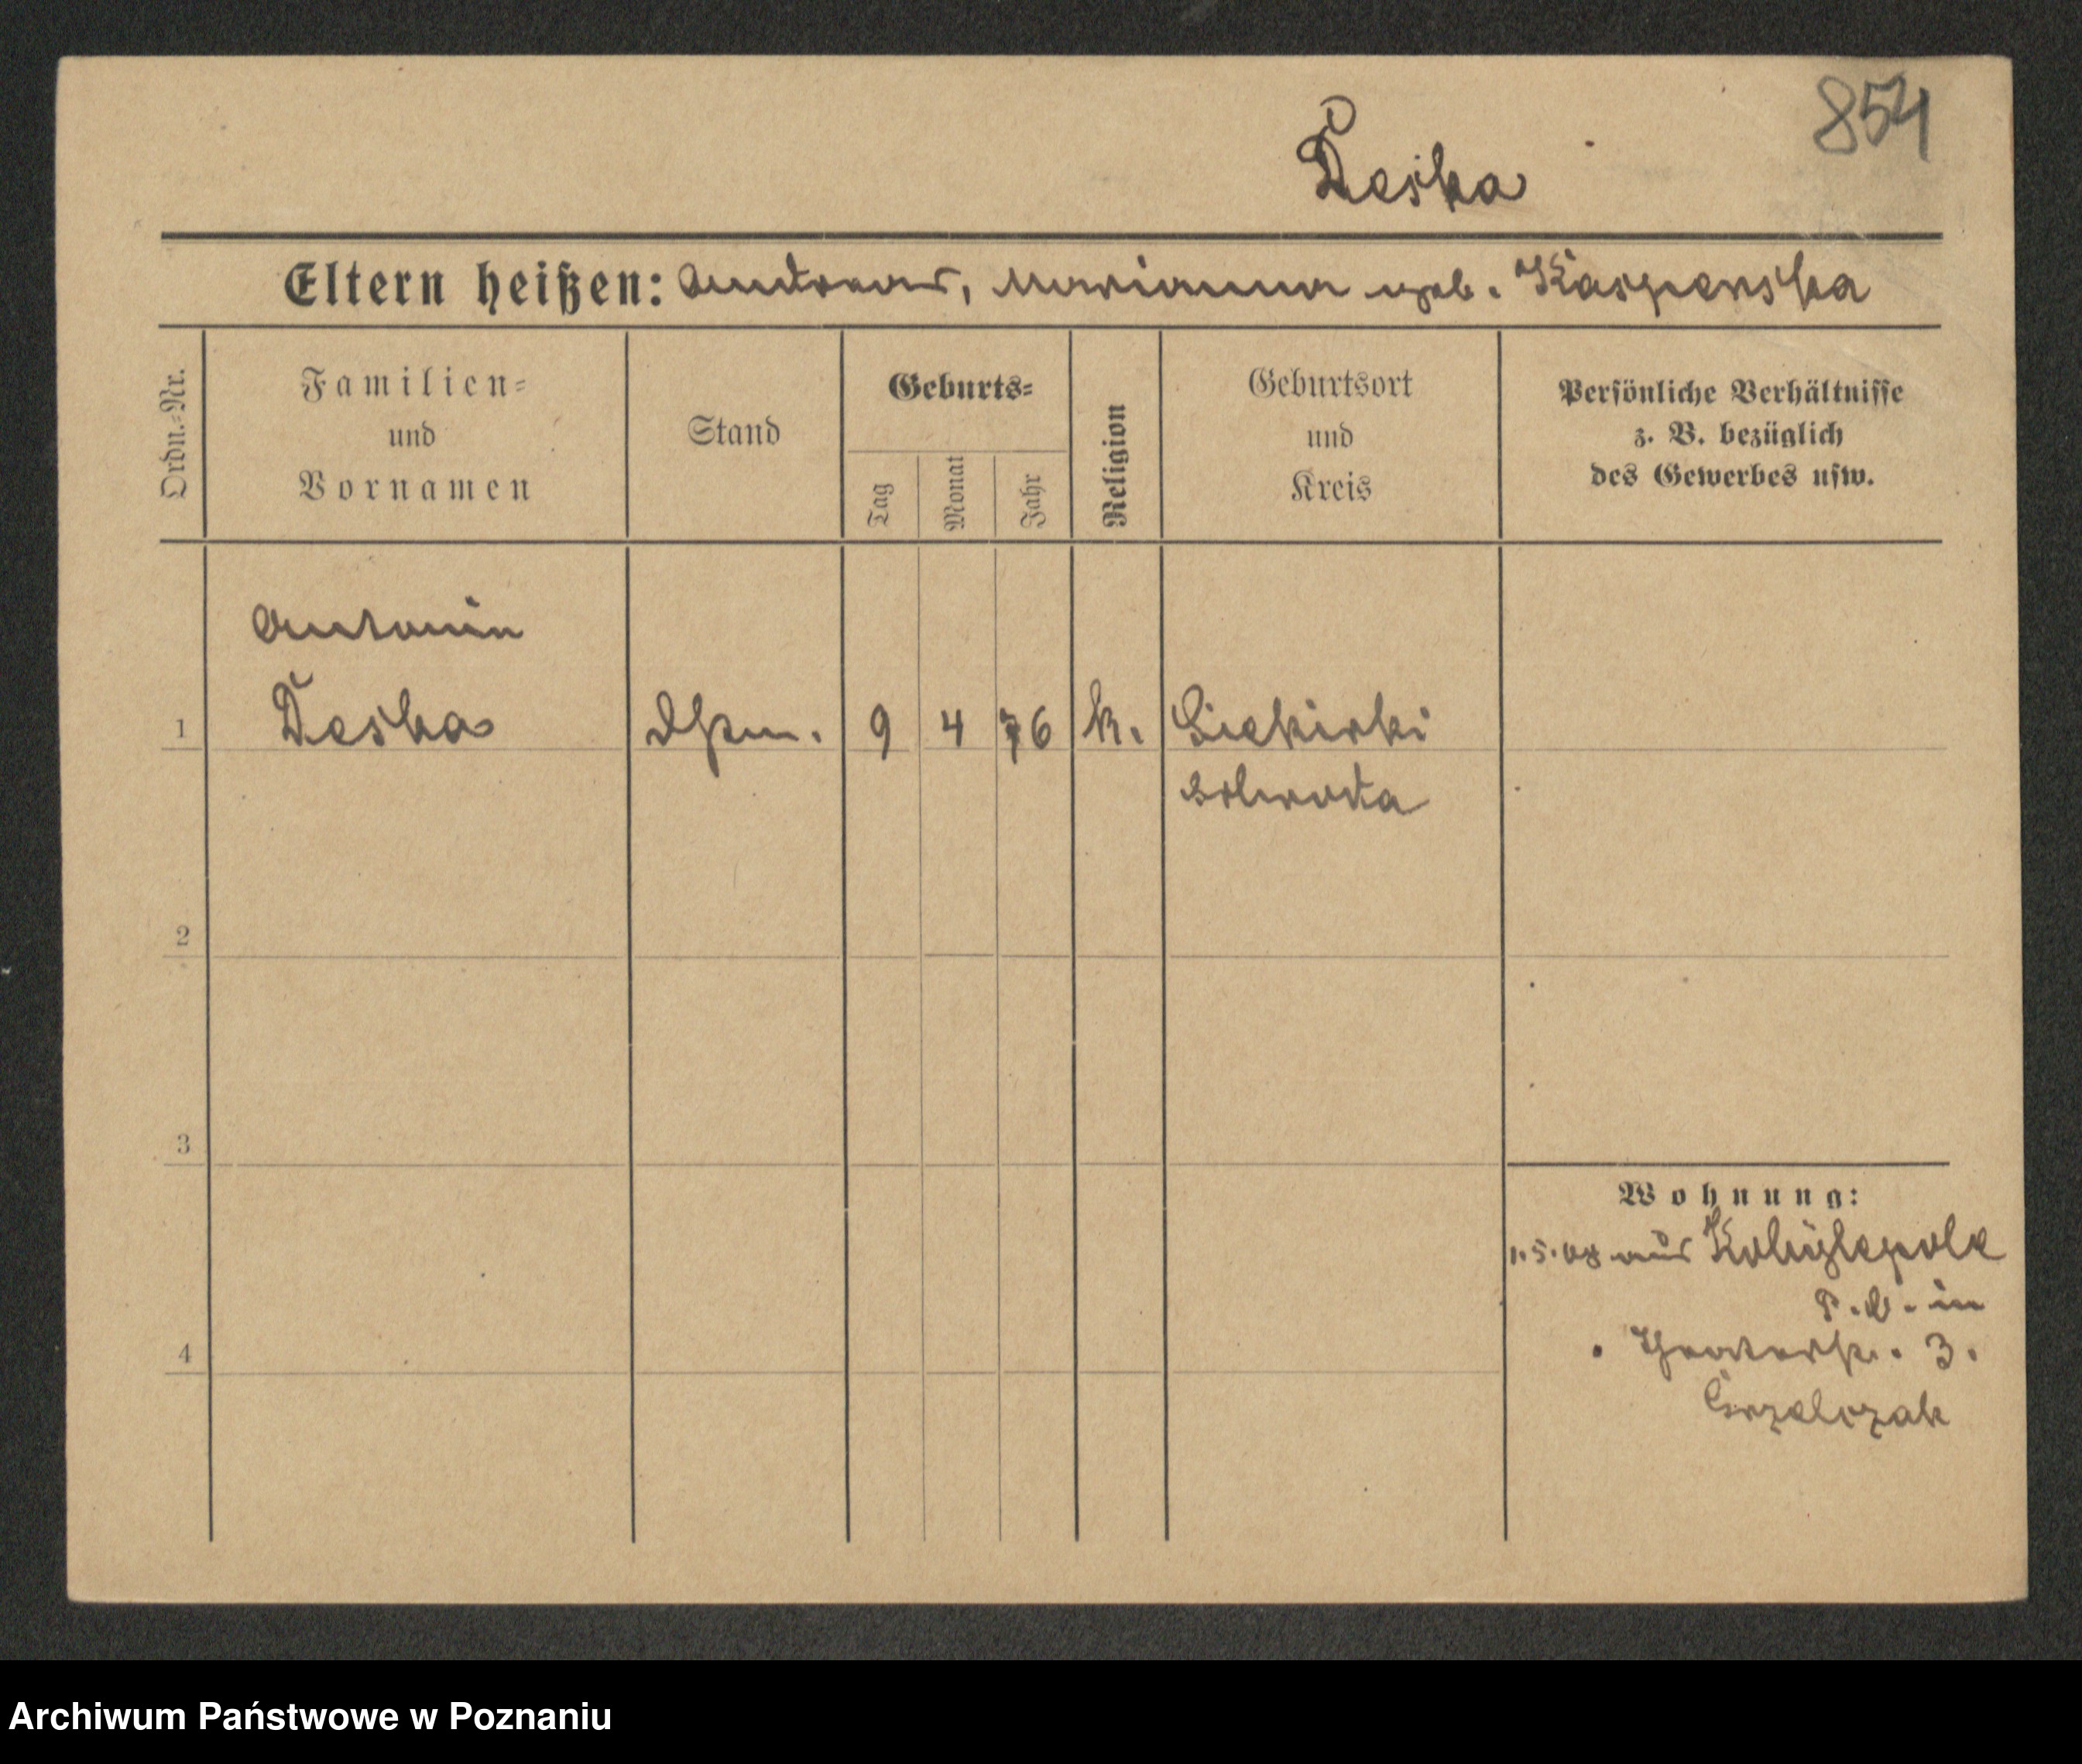 854
Deska
Eltern heißen: Andreas, Marianna geb. Kasperska
Ordn.-Nr.
Familien-
und
Vornamen
Stand
Geburts-
Tag
Monat
Jahr
Religion
Geburtsort
und
Kreis
Persönliche Verhältnisse
z. B. bezüglich
des Gewerbes usw.
Antonin
1 Deska 9 4 76 k. Siekirki
2
3
4
Wohnung:
1.5.08 aus Kobylepole
P. O. in
Theaterstr. 3.
Archiwum Państwowe w Poznaniu